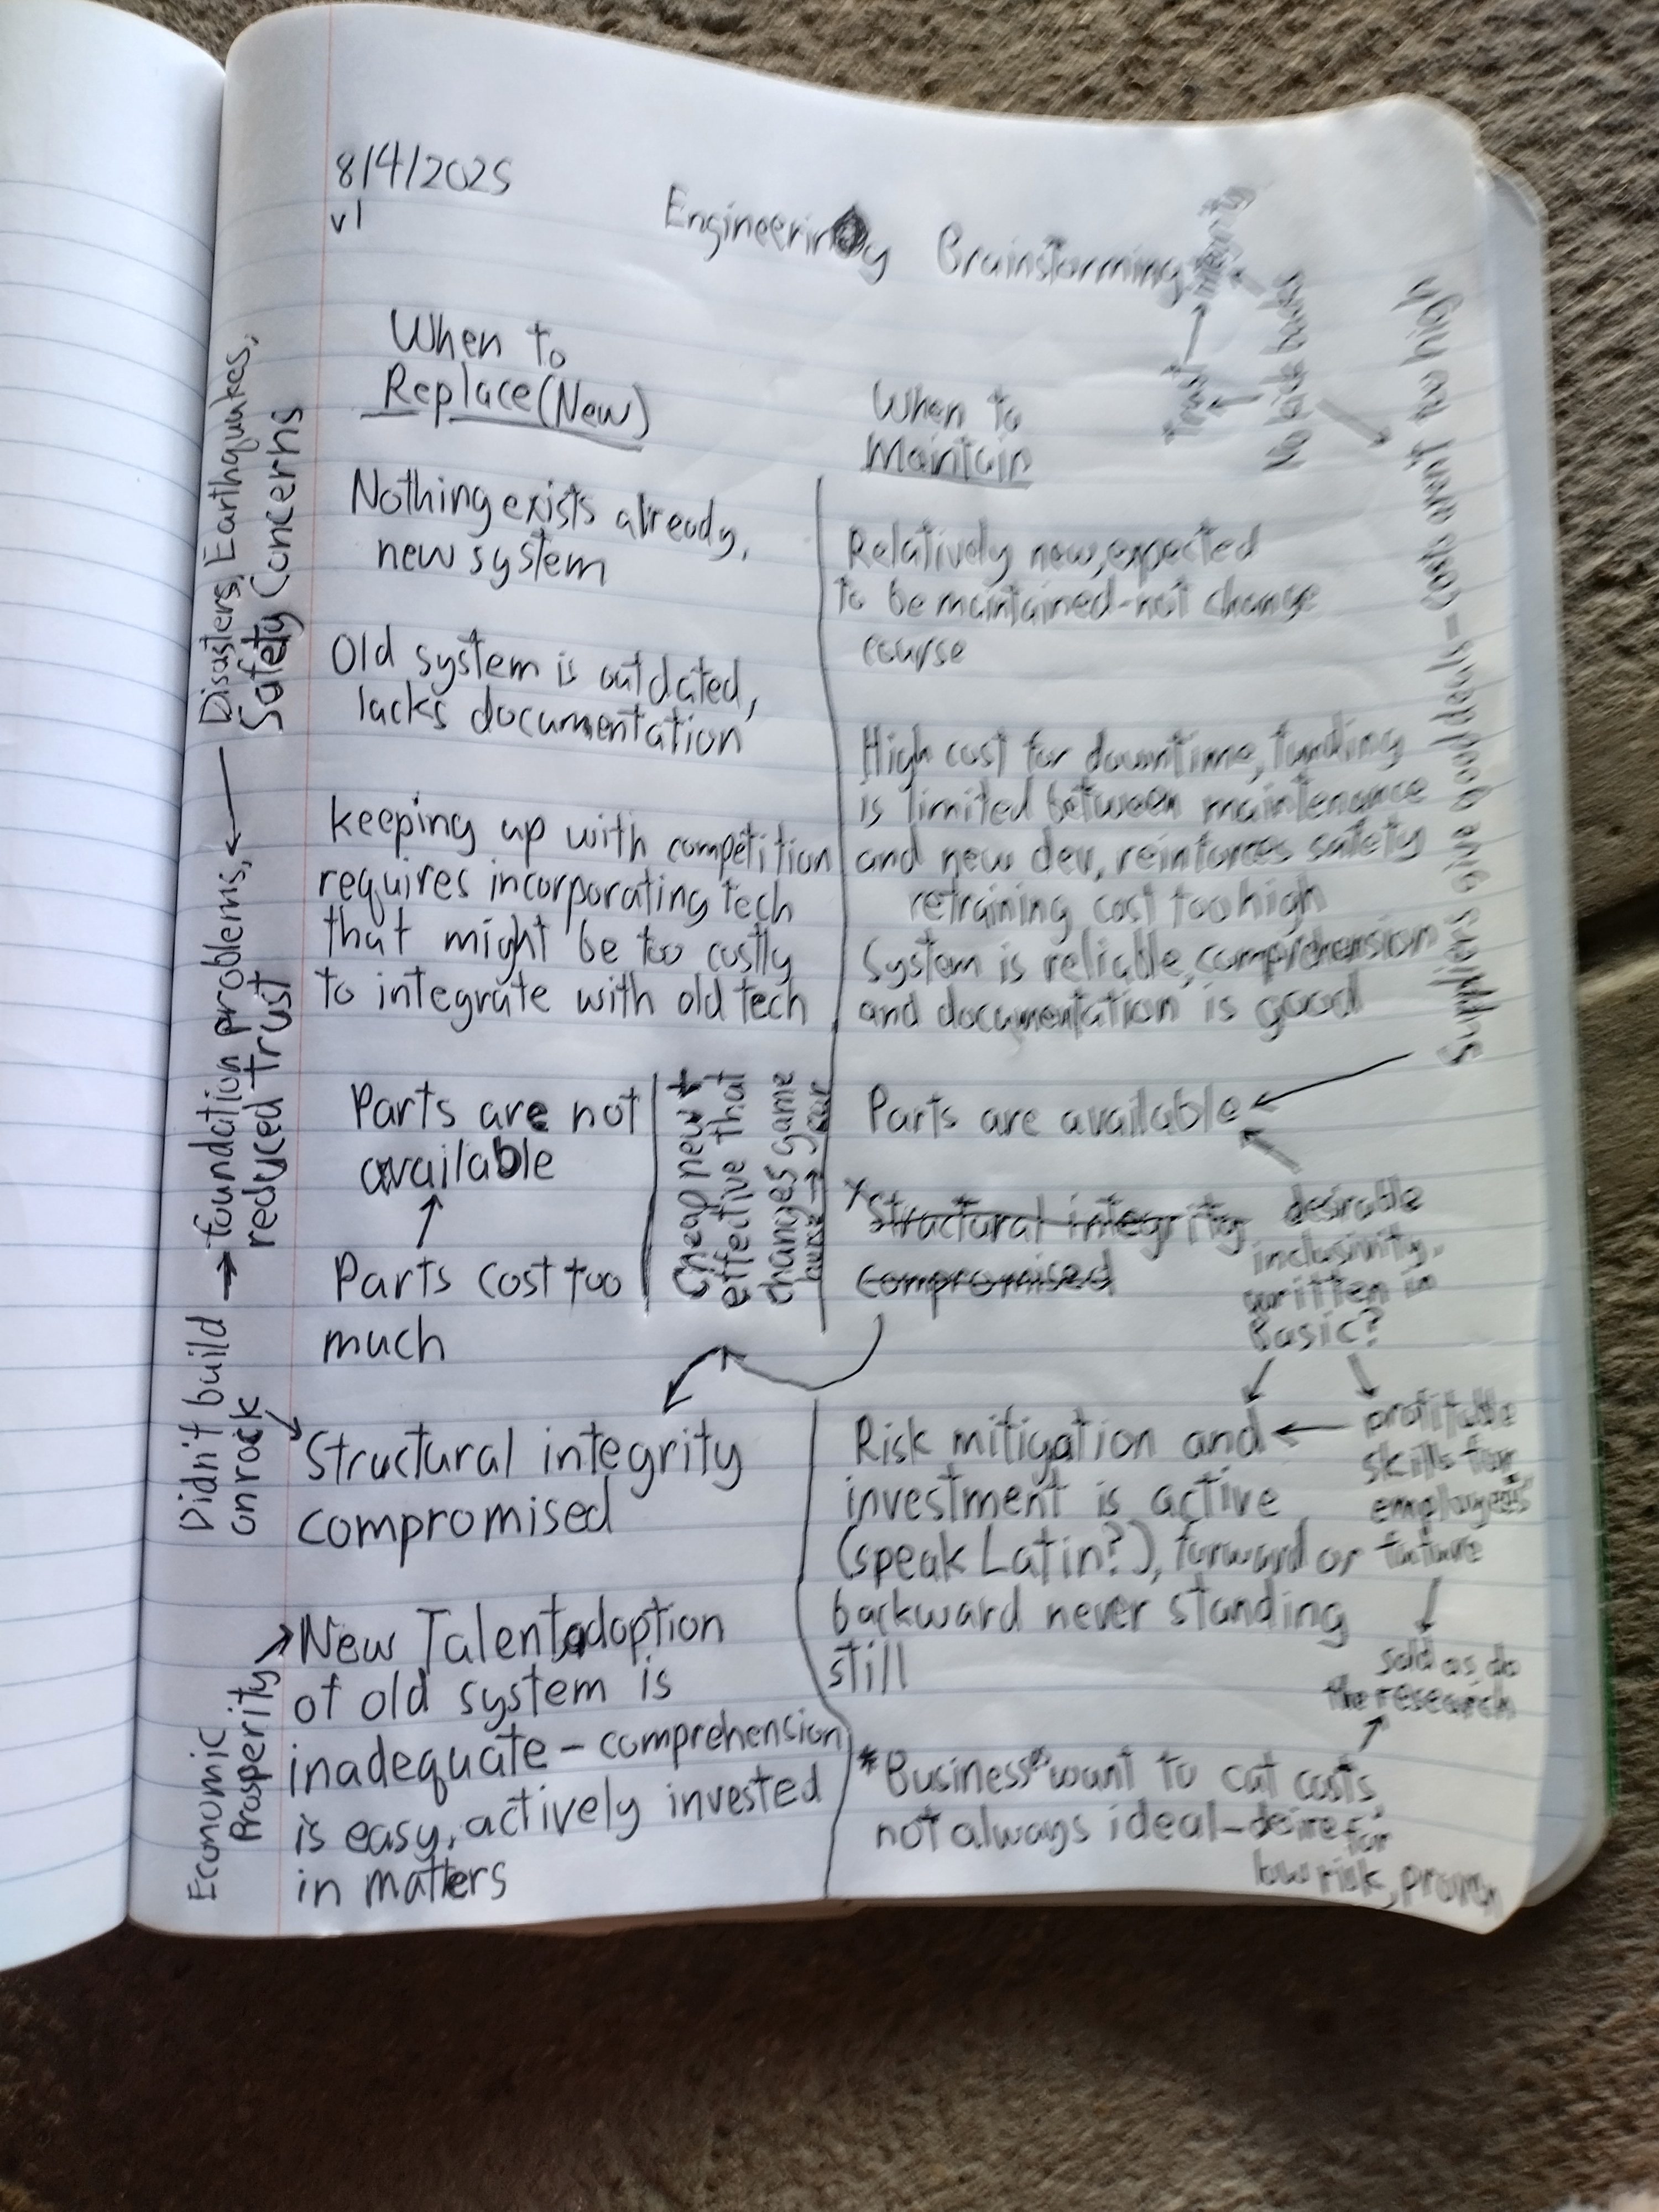 8/4/2025
v1
Engineering Brainstorming
When to
Replace (New)
Nothing exists already,
new system
Old system is outdated,
lacks documentation
keeping up with competition
requires incorporating tech
that might be too costly
to integrate with old tech
Parts are not
available
Parts cost too
much
Cheap new +
effective that
changes game
Structural integrity
compromised
New Talent adoption
of old system is
inadequate - comprehension
is easy, actively invested
in matters
Disasters, Earthquakes,
Safety Concerns
foundation problems,
reduced trust
Didn't build
on rock
Economic
Prosperity
When to
Maintain
Relatively new, expected
to be maintained - not change
course
High cost for downtime, funding
is limited between maintenance
and new dev, reinforces safety
retraining cost too high
System is reliable, comprehension
and documentation is good
Parts are available
*Structural integrity
compromised
desirable
inclusivity,
written in
Basic?
Risk mitigation and
investment is active
(speak Latin?), forward or
backward never standing
still
profitable
skills for
employees
future
sold as do
the research
*Business want to cut costs,
not always ideal - desire for
low risk, proven
integrity
trust
No kick backs
Suppliers give good deals - costs aren't too high